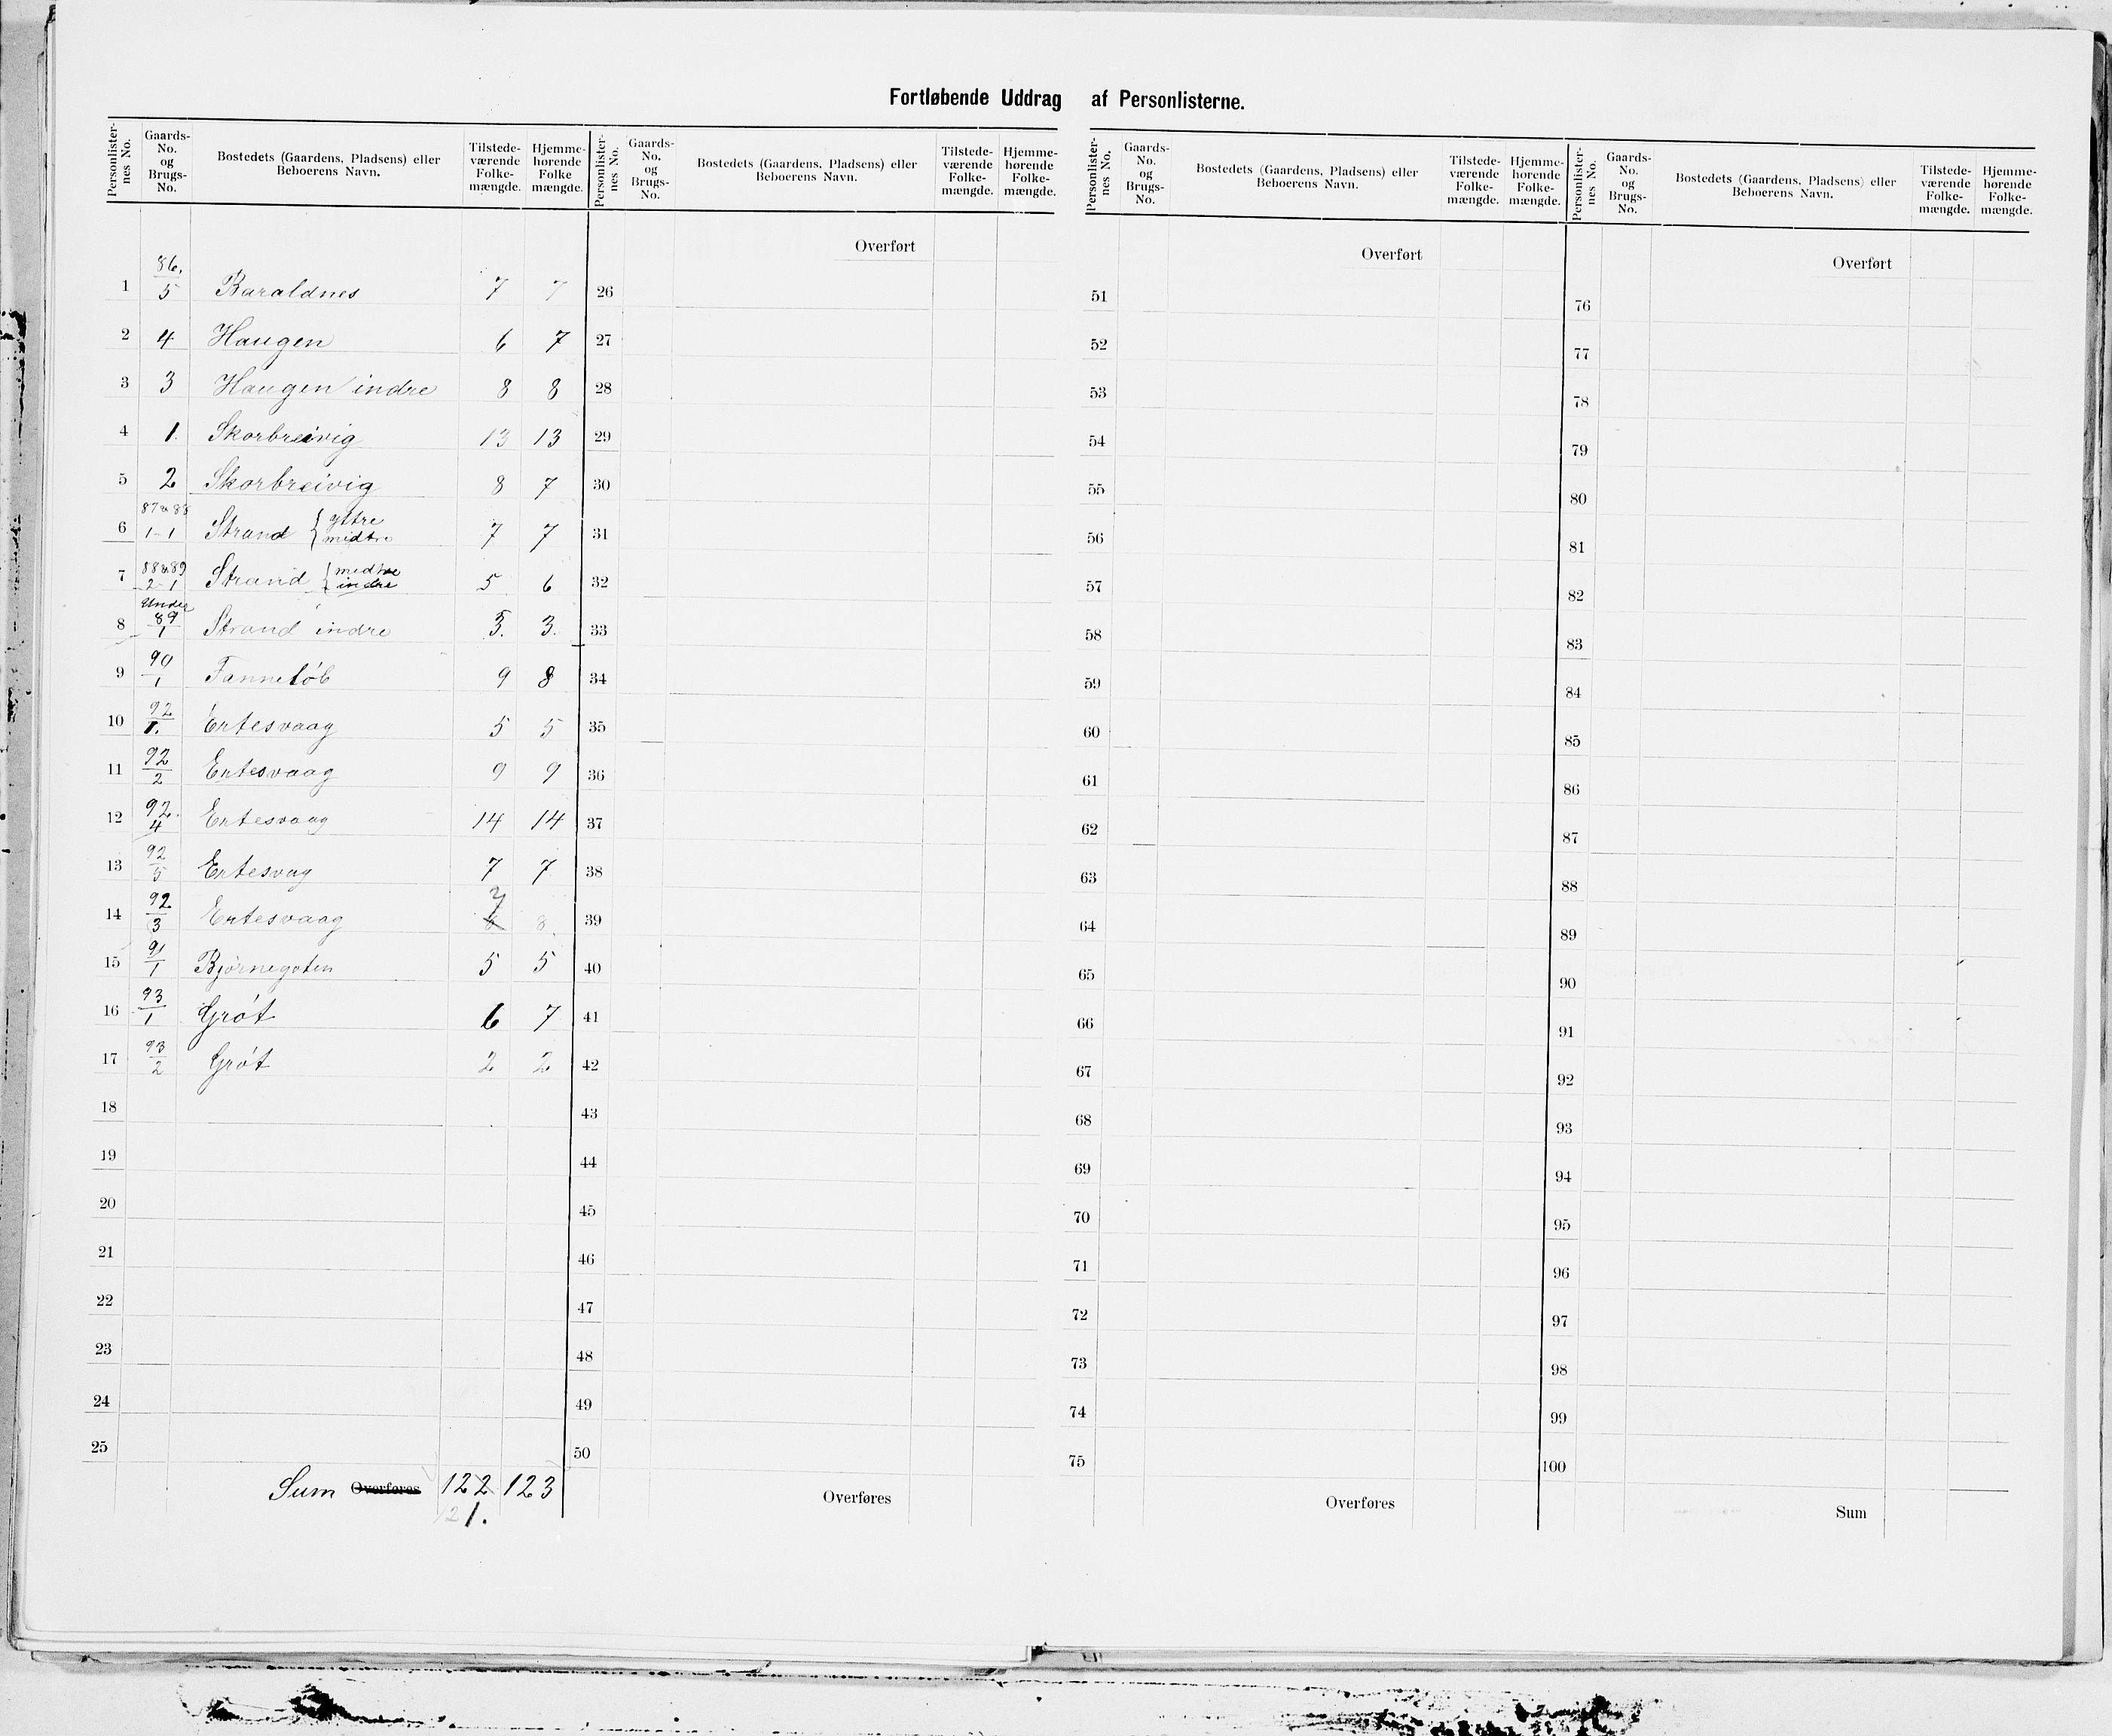 Fortløbende Uddrag af Personlisterne.
Personlister-nes No. | Gaards-No. og Brugs-No. | Bostedets (Gaardens, Pladsens) eller Beboerens Navn. | Tilstede-værende Folke-mængde. | Hjemme-hørende Folke mængde.
Personlister-nes No. | Gaards-No. og Brugs-No. | Bostedets (Gaardens, Pladsens) eller Beboerens Navn. | Tilstede-værende Folke-mængde. | Hjemme-hørende Folke-mængde.
Personlister-nes No. | Gaards-No. og Brugs-No. | Bostedets (Gaardens, Pladsens) eller Beboerens Navn. | Tilstede-værende Folke-mængde. | Hjemme-hørende Folke-mængde.
Personlister-nes No. | Gaards-No. og Brugs-No. | Bostedets (Gaardens, Pladsens) eller Beboerens Navn. | Tilstede-værende Folke-mængde. | Hjemme-hørende Folke-mængde.
1 86/5 Baraldnes 7 7
2 4 Haugen 6 7
3 3 Haugen indre 8 8
4 1. Skorbreivig 13 13
5 2 Skorbreivig 8 7
6 87 & 88 1-1 Strand { yttre midtre 7 7
7 88 & 89 2-1 Strand { medtre indre 5 6
8 Under 89/1 Strand indre 3. 3.
9 90/1 Fanneløb 9 8
10 92/1. Ertesvaag 5 5
11 92/2 Ertesvaag 9 9
12 92/4 Ertesvaag 14 14
13 92/5 Ertesvag 7 7
14 92/3 Ertesvaag 7 8
15 91/1 Bjørnegoten 5 5
16 93/1 Grøt 6 7
17 93/2 Grøt 2 2
18
19
20
21
22
23
24
25
Sum Overføres 122 123
121.
Overført
26
27
28
29
30
31
32
33
34
35
36
37
38
39
40
41
42
43
44
45
46
47
48
49
50
Overføres
Overført
51
52
53
54
55
56
57
58
59
60
61
62
63
64
65
66
67
68
69
70
71
72
73
74
75
Overføres
Overført
76
77
78
79
80
81
82
83
84
85
86
87
88
89
90
91
92
93
94
95
96
97
98
99
100
Sum